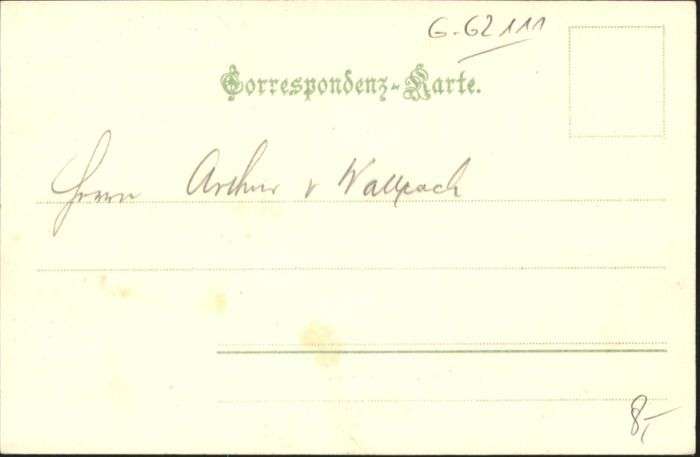 G-62111
Correspondenz-Karte.
Herrn Arthur v Wallpach
8,-